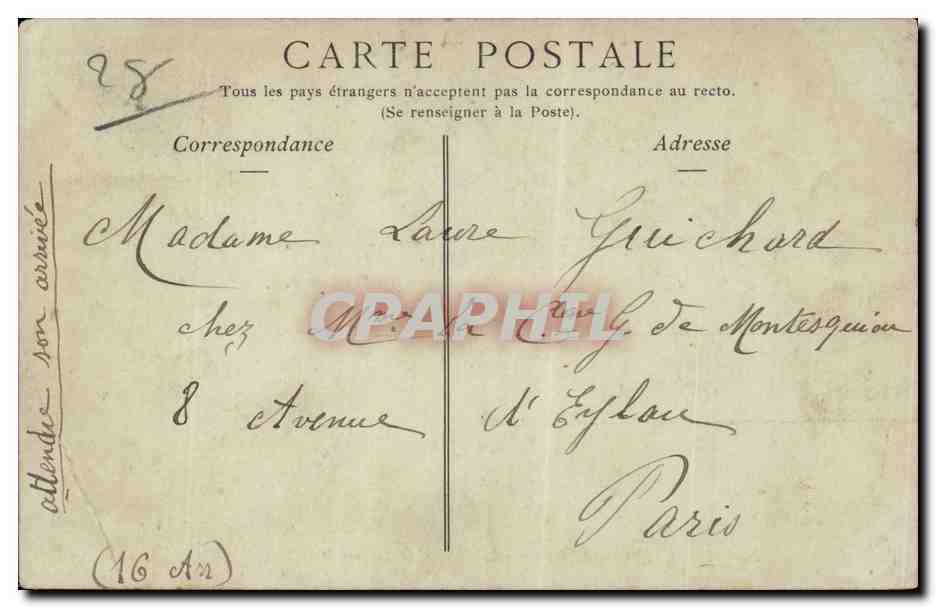 28
CARTE POSTALE
Tous les pays étrangers n'acceptent pas la correspondance au recto.
(Se renseigner à la Poste).
Correspondance
Adresse
Madame Laure Guichard
chez Mme la Ctesse G. de Montesquiou
8 Avenue d'Eylau
Paris
(16 Arr)
attendre son arrivée
CPAPHIL